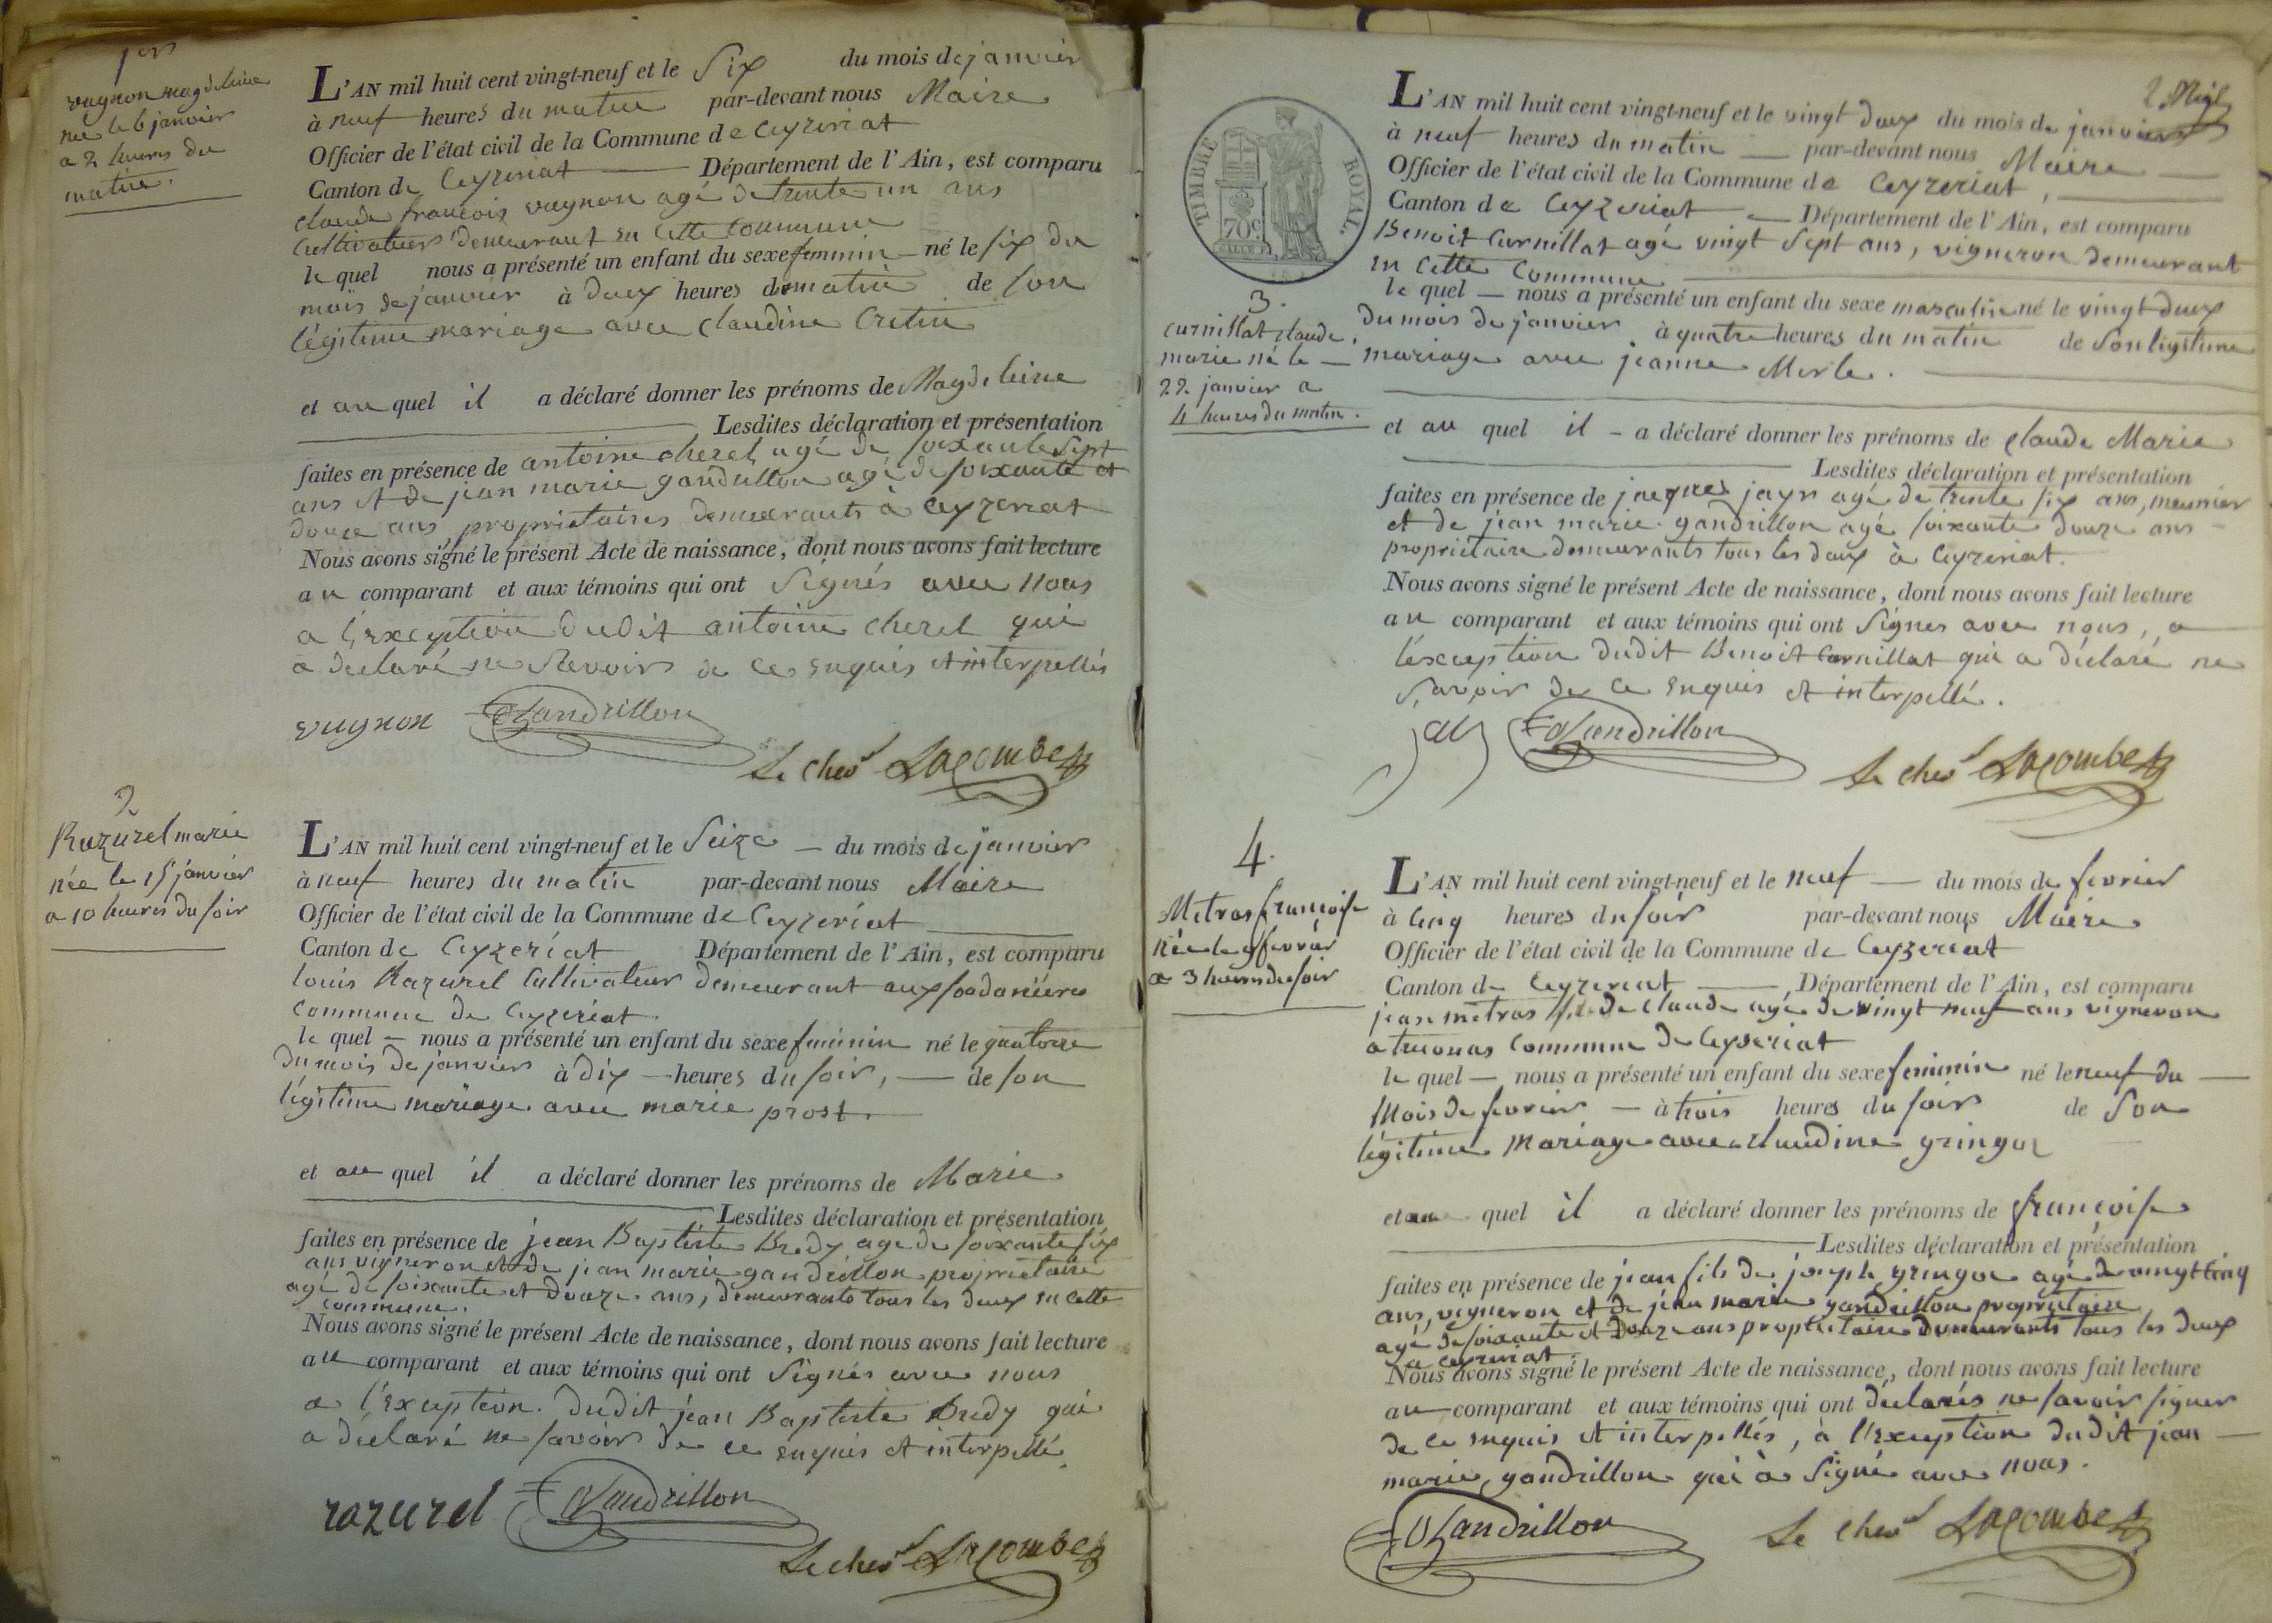 1er
vugnon magdeleine
née le 6 janvier
a 2 heures du
matin.
L'AN mil huit cent vingt-neuf et le Six du mois de janvier
à neuf heures du matin par-devant nous Maire
Officier de l'état civil de la Commune de Ceyzeriat
Canton de Ceyzeriat Département de l'Ain, est comparu
claude francois vugnon agé de trente un ans
Cultivateur demeurant en Cette Commune
le quel nous a présenté un enfant du sexe feminin né le six du
mois de janvier à deux heures du matin de son
légitime mariage avec Claudine Cretin
et au quel il a déclaré donner les prénoms de Magdeleine
Lesdites déclaration et présentation
faites en présence de antoine cherel agé de soixante Sept
ans et de jean marie gandrillon agé de soixante et
douze ans proprietaires demeurants à Ceyzeriat
Nous avons signé le présent Acte de naissance, dont nous avons fait lecture
au comparant et aux témoins qui ont Signés avec nous
a l'Exception dudit antoine cherel qui
a declaré ne Savoir de ce enquis et interpellés
vugnon Gandrillon
Le chevr Lacombe
2
Razurel marie
née le 15 janvier
a 10 heures du soir
L'AN mil huit cent vingt-neuf et le Seize du mois de janvier
à neuf heures du matin par-devant nous Maire
Officier de l'état civil de la Commune de Ceyzeriat
Canton de Ceyzeriat Département de l'Ain, est comparu
louis Razurel Cultivateur demeurant aux
Commune de Ceyzeriat.
le quel nous a présenté un enfant du sexe feminin né le quatorze
du mois de janvier à dix heures du soir, de son
légitime mariage avec marie prost.
et au quel il a déclaré donner les prénoms de Marie
Lesdites déclaration et présentation
faites en présence de jean Baptiste Bredy agé de soixante six
ans vigneron et de jean marie gandrillon proprietaire
agé de soixante et douze ans, demeurants tous les deux en cette
commune.
Nous avons signé le présent Acte de naissance, dont nous avons fait lecture
au comparant et aux témoins qui ont Signés avec nous
a l'Exception dudit jean Baptiste Bredy qui
a déclaré ne savoir de ce enquis et interpellé.
razurel Gandrillon
Le chevr Lacombe
TIMBRE ROYAL.
70c
3.
curnillat claude
marie né le
22 janvier a
4 heures du matin.
L'AN mil huit cent vingt-neuf et le vingt deux du mois de janvier
à neuf heures du matin par-devant nous Maire
Officier de l'état civil de la Commune de Ceyzeriat,
Canton de Ceyzeriat Département de l'Ain, est comparu
Benoit Curnillat agé vingt Sept ans, vigneron demeurant
en Cette Commune
le quel nous a présenté un enfant du sexe masculin né le vingt deux
du mois de janvier à quatre heures du matin de Son légitime
mariage avec jeanne Merle.
et au quel il a déclaré donner les prénoms de claude Marie
Lesdites déclaration et présentation
faites en présence de jacques jayr agé de trente six ans, meunier
et de jean marie gandrillon agé soixante douze ans
proprietaire demeurants tous les deux à Ceyzeriat.
Nous avons signé le présent Acte de naissance, dont nous avons fait lecture
au comparant et aux témoins qui ont Signés avec nous, a
l'exception dudit Benoit Curnillat qui a déclaré ne
Savoir de ce enquis et interpellé.
Gandrillon
Le chevr Lacombe
4.
Metras françoise
née le 9 fevrier
a 3 heures du soir
L'AN mil huit cent vingt-neuf et le neuf du mois de fevrier
à Cinq heures du soir par-devant nous Maire
Officier de l'état civil de la Commune de Ceyzeriat
Canton de Ceyzeriat Département de l'Ain, est comparu
jean metras fils de claude agé de vingt neuf ans vigneron
a Commune de Ceyzeriat
le quel nous a présenté un enfant du sexe feminin né le neuf du
Mois de fevrier à trois heures du soir de Son
légitime Mariage avec claudine gringoz
et au quel il a déclaré donner les prénoms de françoise
Lesdites déclaration et présentation
faites en présence de jean fils de joseph gringoz agé de vingt Cinq
ans, vigneron et de jean marie gandrillon proprietaire
agé de soixante et douze ans proprietaire demeurants tous les deux
a Ceyzeriat.
Nous avons signé le présent Acte de naissance, dont nous avons fait lecture
au comparant et aux témoins qui ont déclarés ne savoir signer
de ce enquis et interpellés, à l'Exception dudit jean
marie gandrillon qui a Signé avec nous.
Gandrillon
Le chevr Lacombe